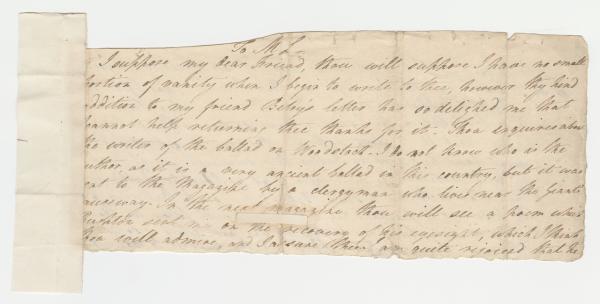 To M L
I suppose my dear Friend, thou will suppose I have no small
portion of vanity when I begin to write to thee, however thy kind
addition to my friend Betsy's letter has so delighted me that
I cannot help returning thee thanks for it. Thou enquires about
the writer of the ballad on Woodstock. I do not know who is the
author, as it is a very ancient ballad in this country, but it was
sent to the Magazine by a clergyman who lives near the Giants
Causeway. In the next magazine thou will see a poem which
Rushton sent me on the recovery of his eyesight, which I think
thou will admire, and I am sure thou art quite rejoiced that he